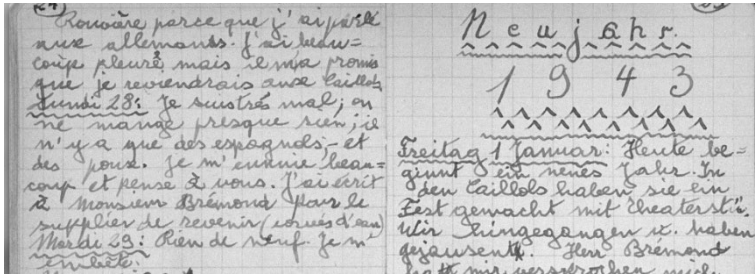 Rouvāre parce que j'ai parlé
aux allemands. J'ai beau=
coup pleuré mais il m'a promis
que je reviendrais aux Caillols
Lundi 28: Je suis très mal; on
ne mange presque rien; il
n'y a que des espagnols; et
des poux. Je m'ennuie beau=
coup et pense à vous. J'ai écrit
à Monsieur Brémond pour le
supplier de revenir (
Mardi 29: Rien de neuf. Je m'
embête.
Neujahr.
1943
Freitag 1 Januar: Heute be=
ginnt ein neues Jahr. In
den Caillols haben sie ein
Fest gemacht mit Theaterst.
Wir hingegangen u. haben
gejausent. Herr Brémond
hatt mir versprochen mich